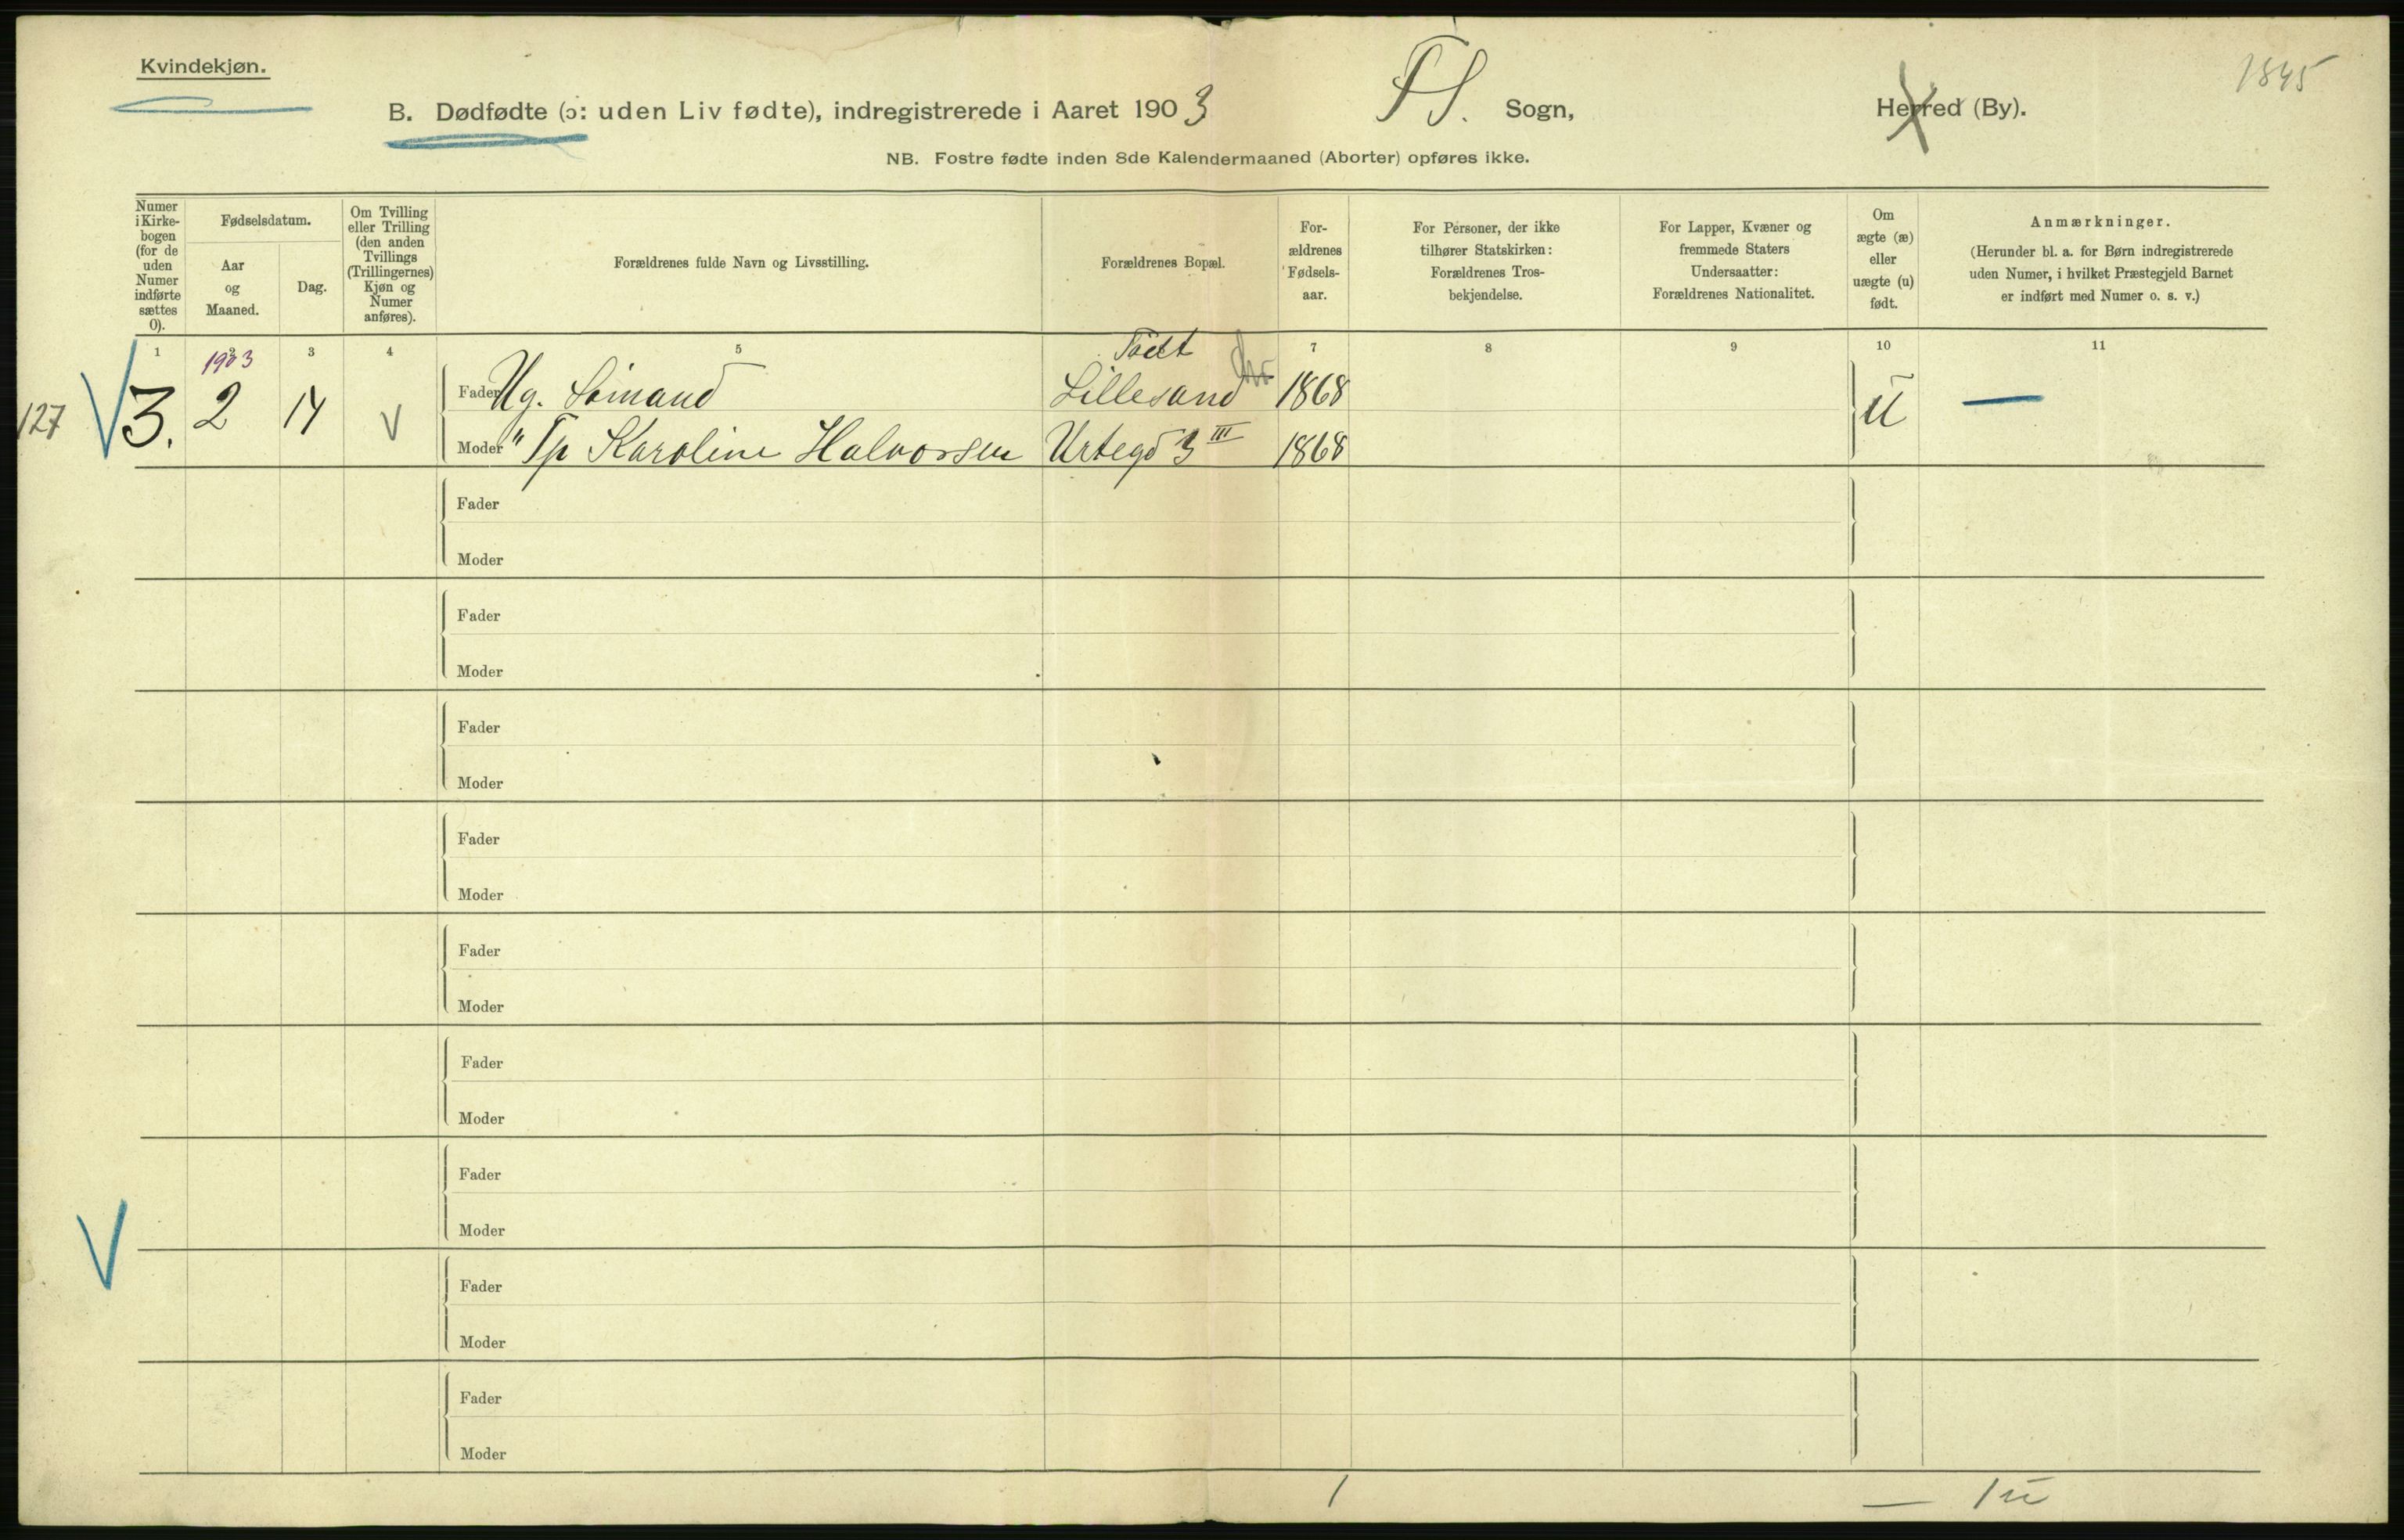 Kvindekjøn.
1845
B. Dødfødte (ɔ: uden Liv fødte), indregistrerede i Aaret 1903 Sogn, Herred (By).
NB. Fostre fødte inden 8de Kalendermaaned (Aborter) opføres ikke.
Numer i Kirkebogen (for de uden Numer indførte sættes 0).
Fødselsdatum.
Aar og Maaned.
Dag.
Om Tvilling eller Trilling (den anden Tvillings (Trillingernes) Kjøn og Numer anføres).
Forældrenes fulde Navn og Livsstilling.
Forældrenes Bopæl.
Forældrenes Fødselsaar.
For Personer, der ikke tilhører Statskirken: Forældrenes Trosbekjendelse.
For Lapper, Kvæner og fremmede Staters Undersaatter: Forældrenes Nationalitet.
Om ægte (æ) eller uægte (u) født.
Anmærkninger.
(Herunder bl. a. for Børn indregistrerede uden Numer, i hvilket Præstegjeld Barnet er indført med Numer o. s. v.)
1 2 3 4 5 7 8 9 10 11
1903
Født
127 3. 2 14 Fader Ug. Sømand Lillesand 1868 u —
Moder " Tp Karoline Halvorsen Urtegd 3 III 1868
Fader
Moder
Fader
Moder
Fader
Moder
Fader
Moder
Fader
Moder
Fader
Moder
Fader
Moder
Fader
Moder
Fader
Moder
1 — 1u